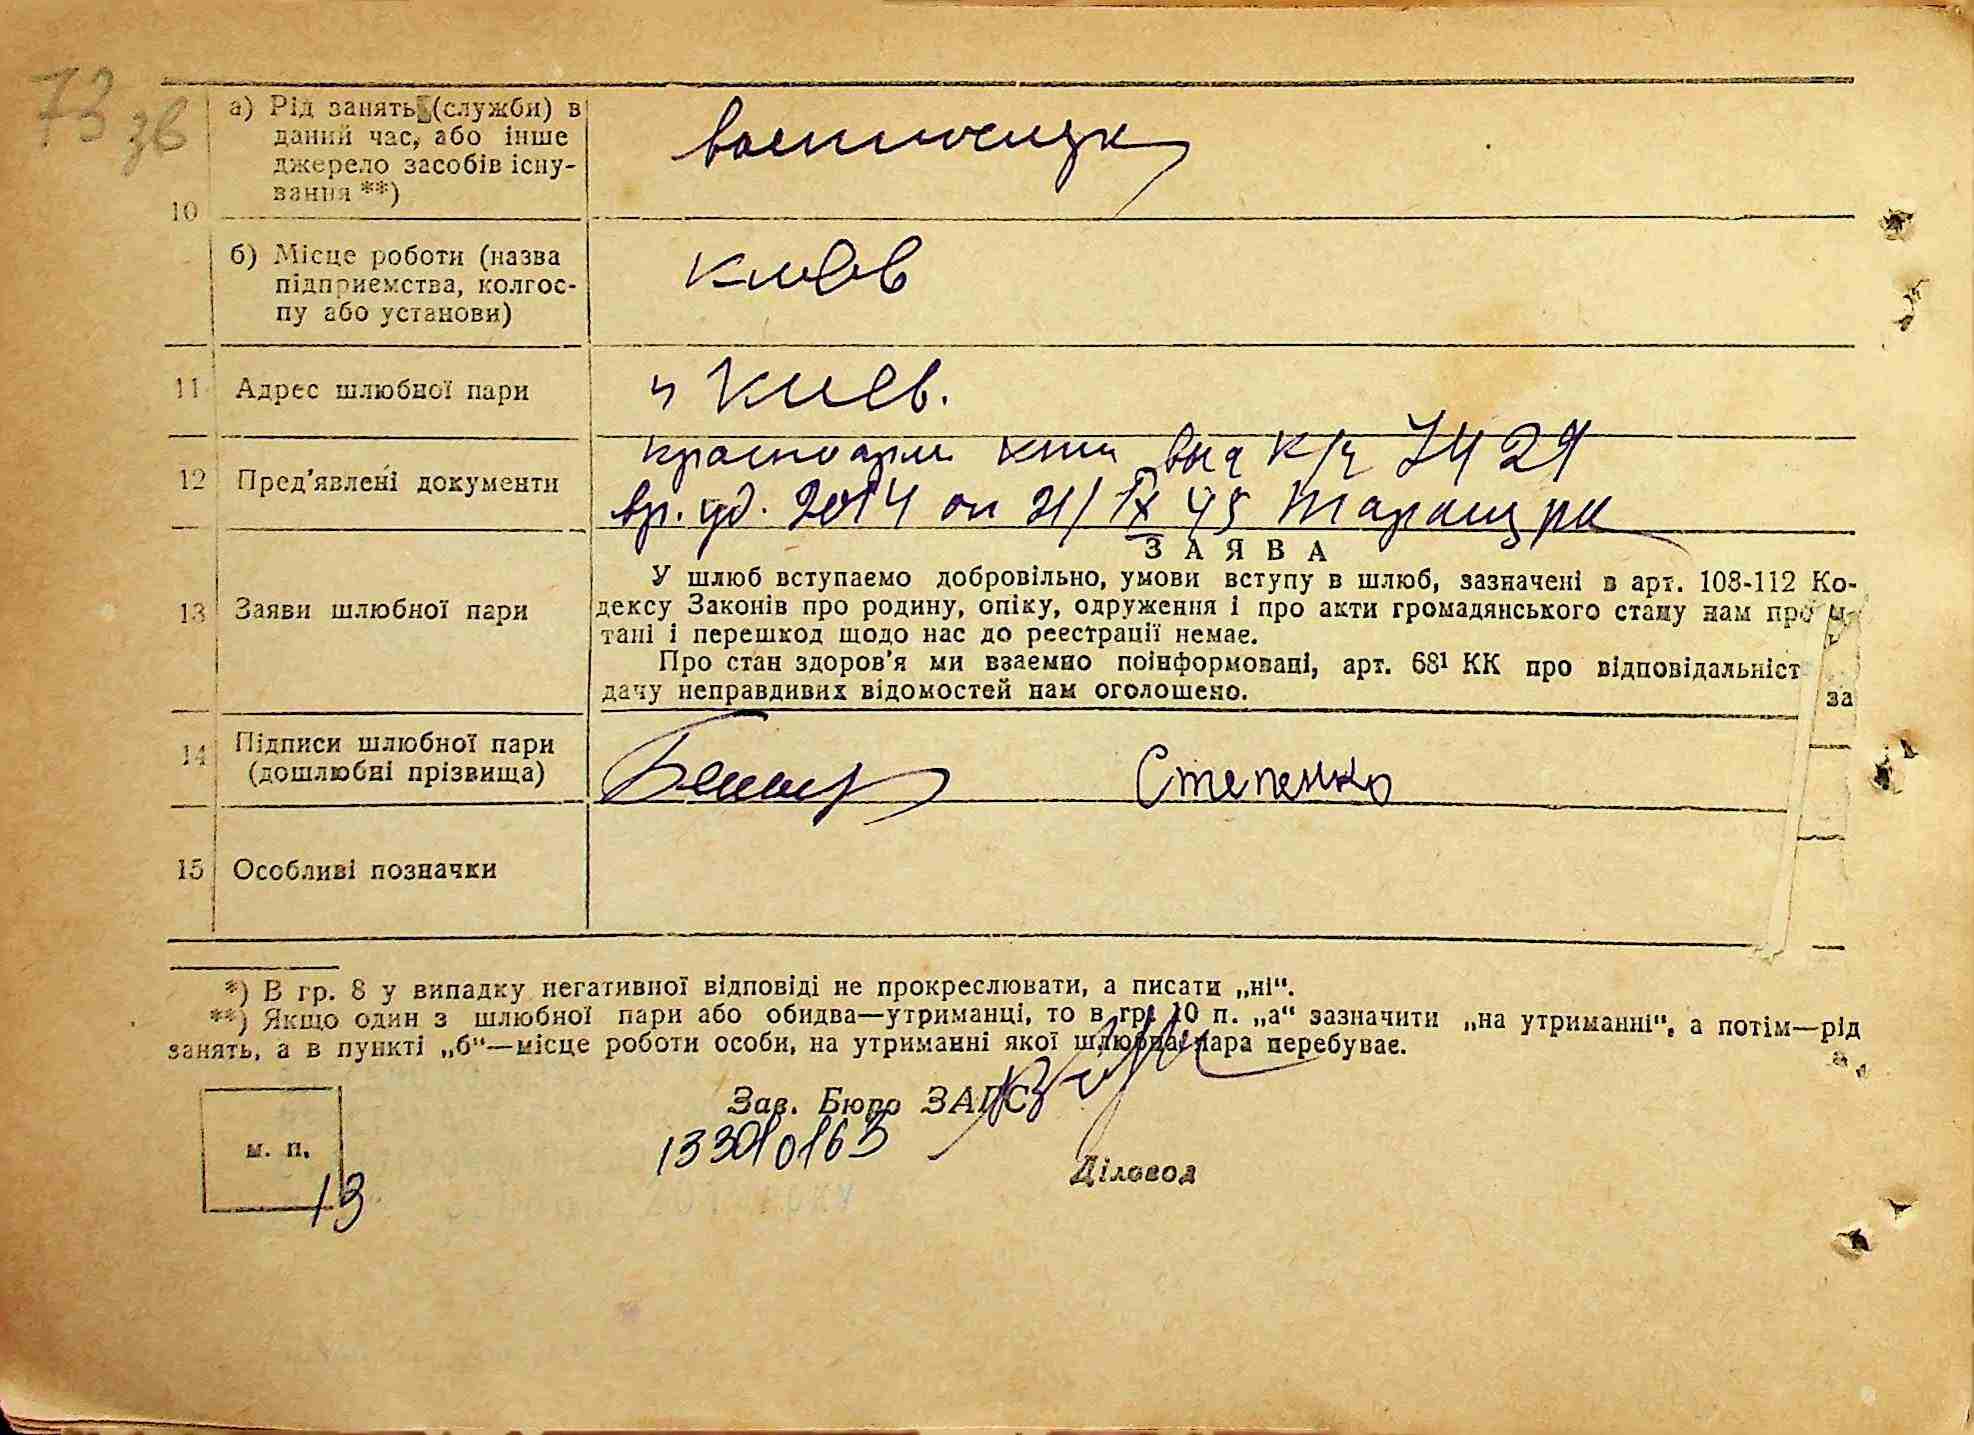 73 зв
10
а) Рід занять (служби) в
даний час, або інше
джерело засобів існу-
вання **)
военнослуж
б) Місце роботи (назва
підприємства, колгос-
пу або установи)
11 Адрес шлюбної пари
г Киев.
12 Пред'явлені документи
красноарм. кни выд К/ч 7429
вр. уд. 2014 от 21/IX 45 Таращ рк
13 Заяви шлюбної пари
ЗАЯВА
У шлюб вступаємо добровільно, умови вступу в шлюб, зазначені в арт. 108-112 Ко-
дексу Законів про родину, опіку, одруження і про акти громадянського стану нам проч
тані і перешкод щодо нас до реєстрації немає.
Про стан здоров'я ми взаємно поінформовані, арт. 68¹ КК про відповідальніст за
дачу неправдивих відомостей нам оголошено.
14 Підписи шлюбної пари
(дошлюбні прізвища)
Степенко
15 Особливі позначки
*) В гр. 8 у випадку негативної відповіді не прокреслювати, а писати „ні“.
**) Якщо один з шлюбної пари або обидва—утриманці, то в гр. 10 п. „а“ зазначити „на утриманні“, а потім—рід
занять, а в пункті „б“—місце роботи особи, на утриманні якої шлюбна пара перебуває.
Зав. Бюро ЗАГС
м. п.
13
Діловод